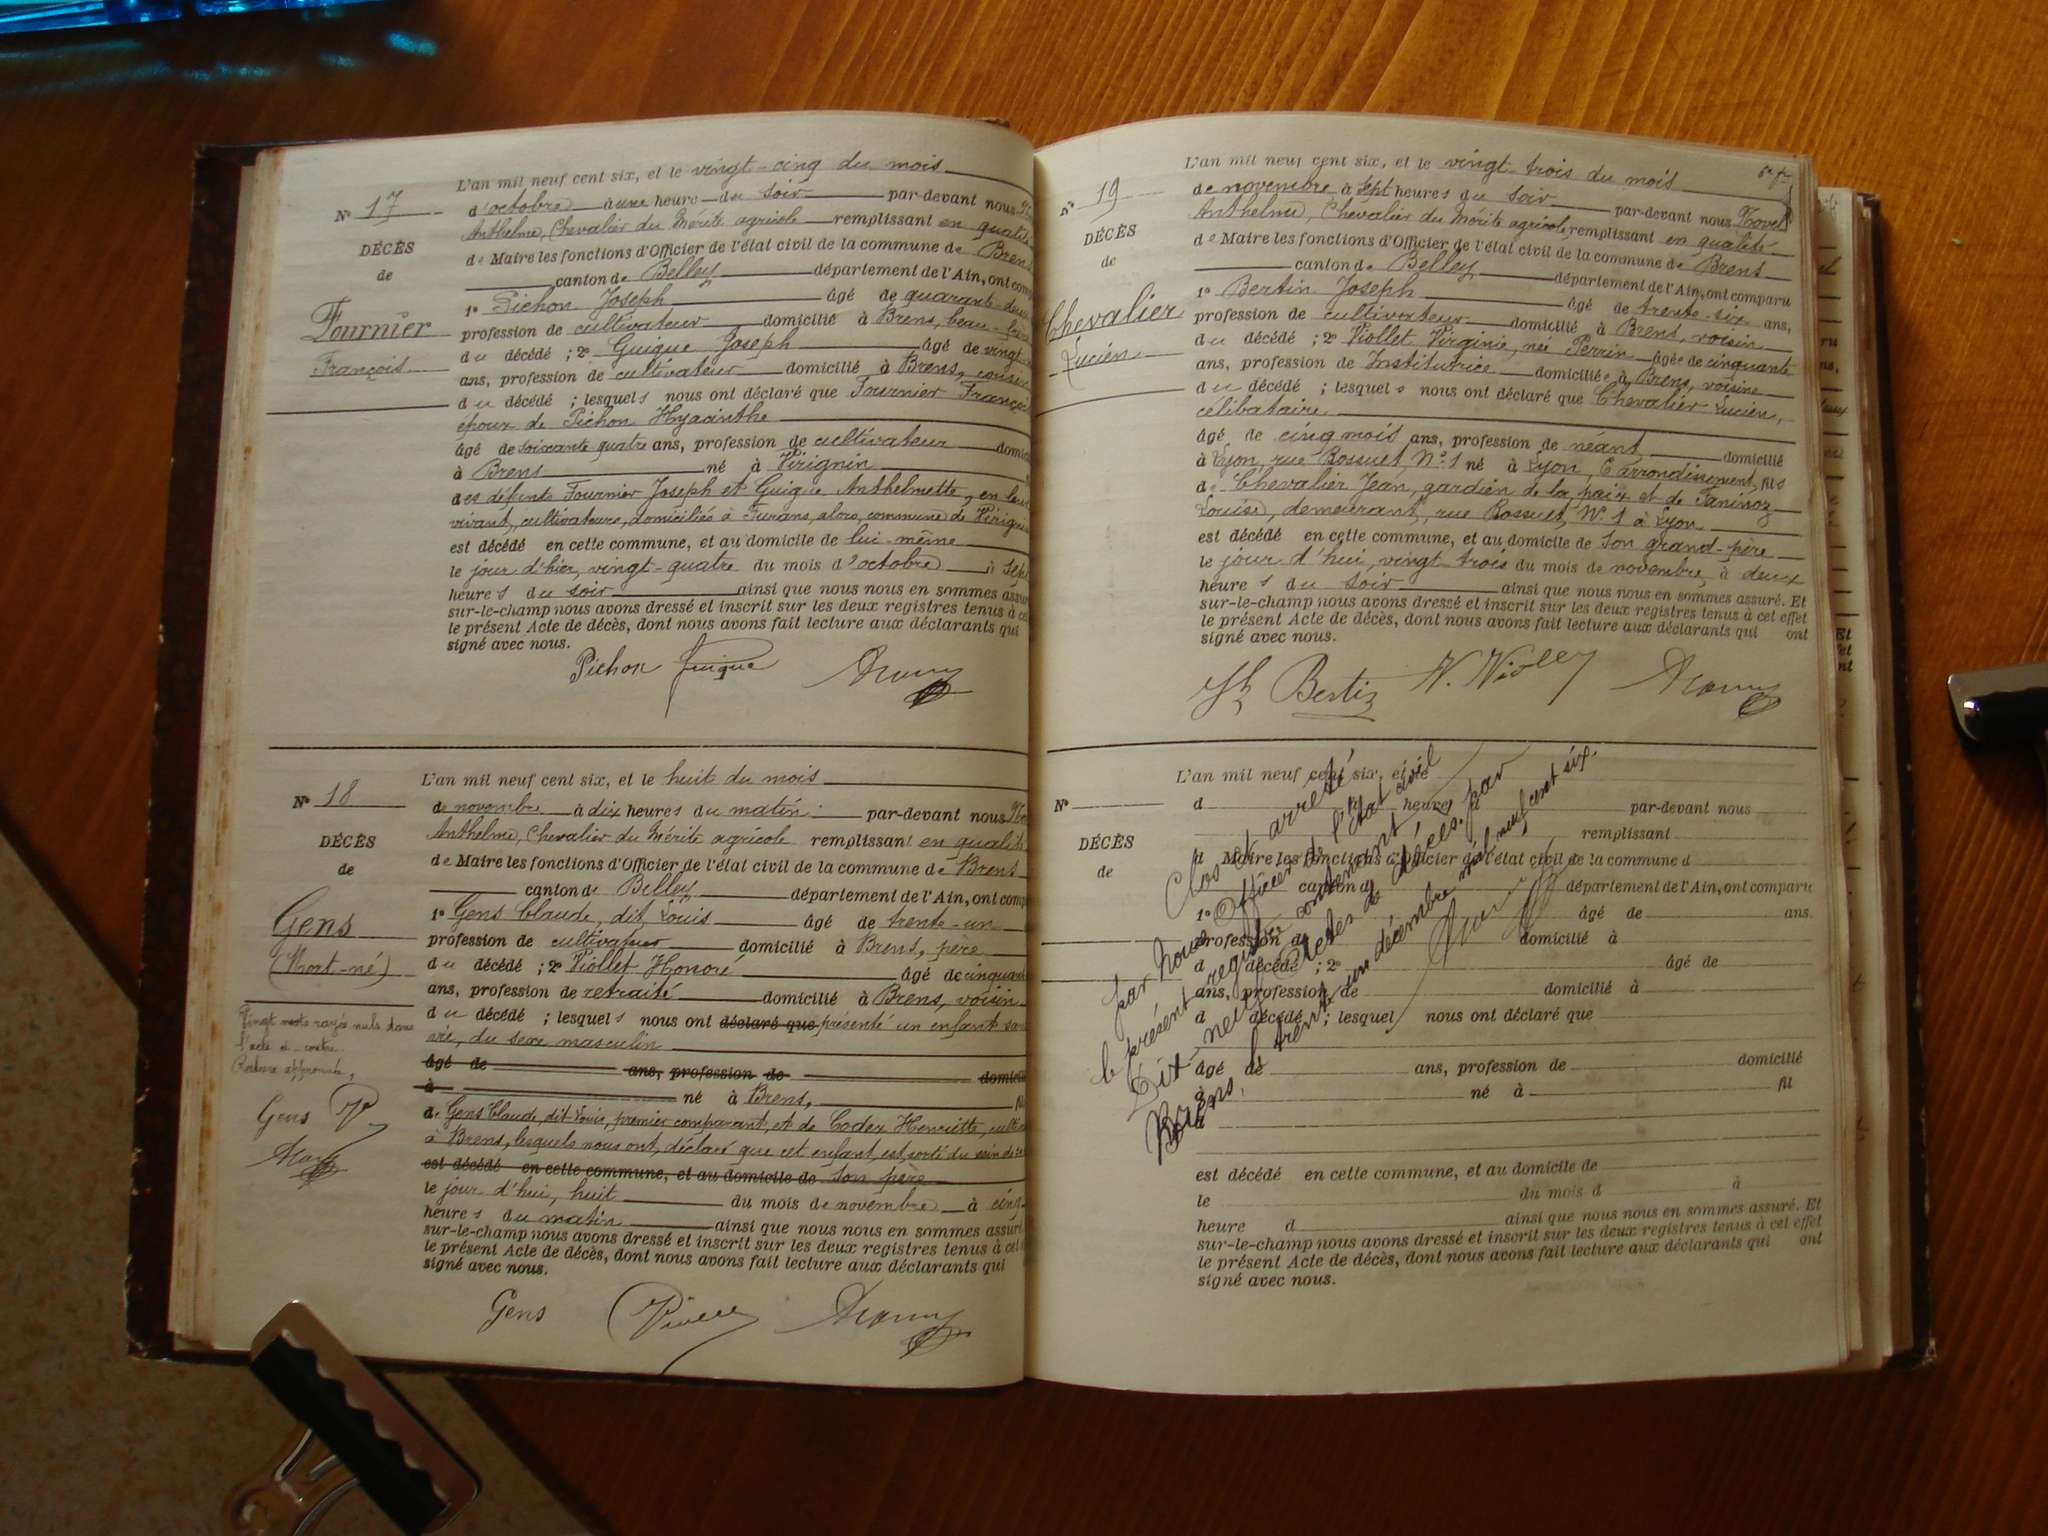 L'an mil neuf cent six, et le vingt-cinq du mois
N° 17
d'octobre à une heure du soir par-devant nous
Anthelme, Chevalier du Mérite agricole remplissant en qualité
DÉCÈS
de Maire les fonctions d'Officier de l'état civil de la commune de Brens
de
canton de Belley département de l'Ain, ont comp
1° Pichon Joseph âgé de quarante-deux
Fournier
profession de cultivateur domicilié à Brens, beau-frère
du décédé ; 2° Guigue Joseph âgé de vingt
François
ans, profession de cultivateur domicilié à Brens, cousin
du décédé ; lesquels nous ont déclaré que Fournier François
époux de Pichon Hyacinthe
âgé de soixante quatre ans, profession de cultivateur domici
à Brens né à Virignin
des défunts Fournier Joseph et Guigue Anthelmette, en leur
vivant, cultivateurs, domiciliés à Furans, alors, commune de Virignin
est décédé en cette commune, et au domicile de lui-même
le jour d'hier, vingt-quatre du mois d'octobre à sept
heures du soir ainsi que nous nous en sommes assur
sur-le-champ nous avons dressé et inscrit sur les deux registres tenus à ce
le présent Acte de décès, dont nous avons fait lecture aux déclarants qui
signé avec nous.
Pichon Guigue
L'an mil neuf cent six, et le huit du mois
N° 18
de novembre à dix heures du matin par-devant nous
Anthelme, Chevalier du Mérite agricole remplissant en qualité
DÉCÈS
de Maire les fonctions d'Officier de l'état civil de la commune de Brens
de
canton de Belley département de l'Ain, ont comp
1° Gens Claude, dit Louis âgé de trente-un
Gens
profession de cultivateur domicilié à Brens, père
(Mort-né)
du décédé ; 2° Viollet Honoré âgé de cinquante
ans, profession de retraité domicilié à Brens, voisin
du décédé ; lesquels nous ont déclaré que présenté un enfant sans
vie, du sexe masculin
Vingt mots rayés nuls dans
l'acte ci-contre.
Rature approuvée,
âgé de ans, profession de domicilié
à né à Brens,
Gens
de Gens Claude, dit Louis, premier comparant, et de Coder Henriette, cultiv
à Brens, lesquels nous ont, déclaré que cet enfant, est, sorti du sein de sa
est décédé en cette commune, et au domicile de son père
le jour d'hui, huit du mois de novembre à cinq
heures du matin ainsi que nous nous en sommes assuré
sur-le-champ nous avons dressé et inscrit sur les deux registres tenus à cet
le présent Acte de décès, dont nous avons fait lecture aux déclarants qui
signé avec nous.
Gens
L'an mil neuf cent six, et le vingt-trois du mois
N° 19
de novembre à sept heures du soir par-devant nous
Anthelme, Chevalier du Mérite agricole remplissant en qualité
DÉCÈS
de Maire les fonctions d'Officier de l'état civil de la commune de Brens
de
canton de Belley département de l'Ain, ont comparu
1° Bertin Joseph âgé de trente-six ans,
Chevalier
profession de cultivateur domicilié à Brens, voisin
du décédé ; 2° Viollet Virginie, née Perrin âgée de cinquante
Lucien
ans, profession de Institutrice domiciliée à Brens, voisine
du décédé ; lesquels nous ont déclaré que Chevalier Lucien,
célibataire
âgé de cinq mois ans, profession de néant domicilié
à Lyon, rue Bossuet, N° 1 né à Lyon, 6 arrondissement, fils
de Chevalier Jean, gardien de la paix et de Paninoz
Louise, demeurant, rue Bossuet, N° 1 à Lyon
est décédé en cette commune, et au domicile de son grand-père
le jour d'hui, vingt trois du mois de novembre, à deux
heures du soir ainsi que nous nous en sommes assuré. Et
sur-le-champ nous avons dressé et inscrit sur les deux registres tenus à cet effet
le présent Acte de décès, dont nous avons fait lecture aux déclarants qui ont
signé avec nous.
Bertin
L'an mil neuf cent six, et le
N°
d heure par-devant nous
remplissant
DÉCÈS
d Maire les fonctions d'Officier de l'état civil de la commune d
de
canton d département de l'Ain, ont comparu
1° âgé de ans.
profession de domicilié à
d décédé ; 2° âgé de
ans, profession de domicilié à
d décédé ; lesquel nous ont déclaré que
âgé de ans, profession de domicilié
à né à fil
d
est décédé en cette commune, et au domicile de
le du mois d à
heure d ainsi que nous nous en sommes assuré. Et
sur-le-champ nous avons dressé et inscrit sur les deux registres tenus à cet effet
le présent Acte de décès, dont nous avons fait lecture aux déclarants qui ont
signé avec nous.
Clos et arrêté
par nous Officier de l'état civil
le présent registre contenant
Dix-neuf Actes de décès, par
Brens, le trente un décembre mil neuf cent six.